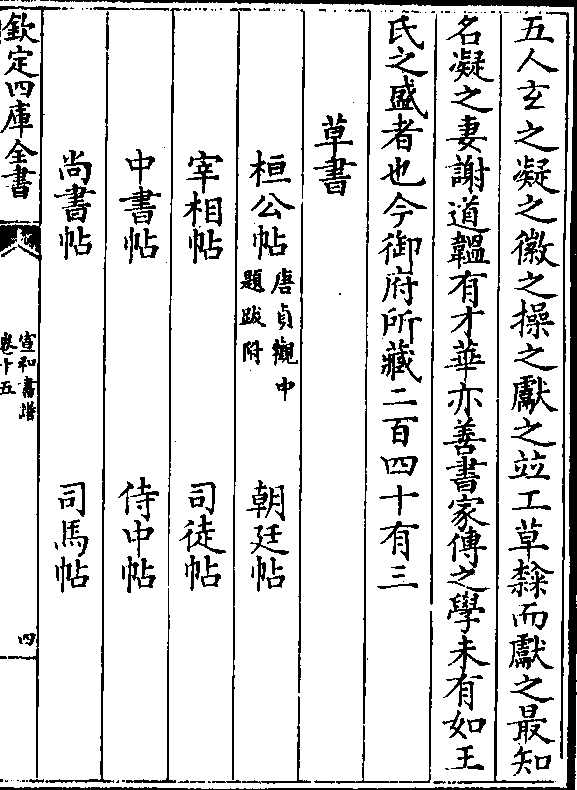 五人玄之凝之徽之操之獻之竝工草隸而獻之最知
名凝之妻謝道韞有才華亦善書家傳之學未有如王
氏之盛者也今御府所藏二百四十有三
草書
桓公帖 唐貞觀中題跋附 朝廷帖
宰相帖 司徒帖
中書帖 侍中帖
尚書帖 司馬帖
欽定四庫全書
宣和書譜
卷十五
四